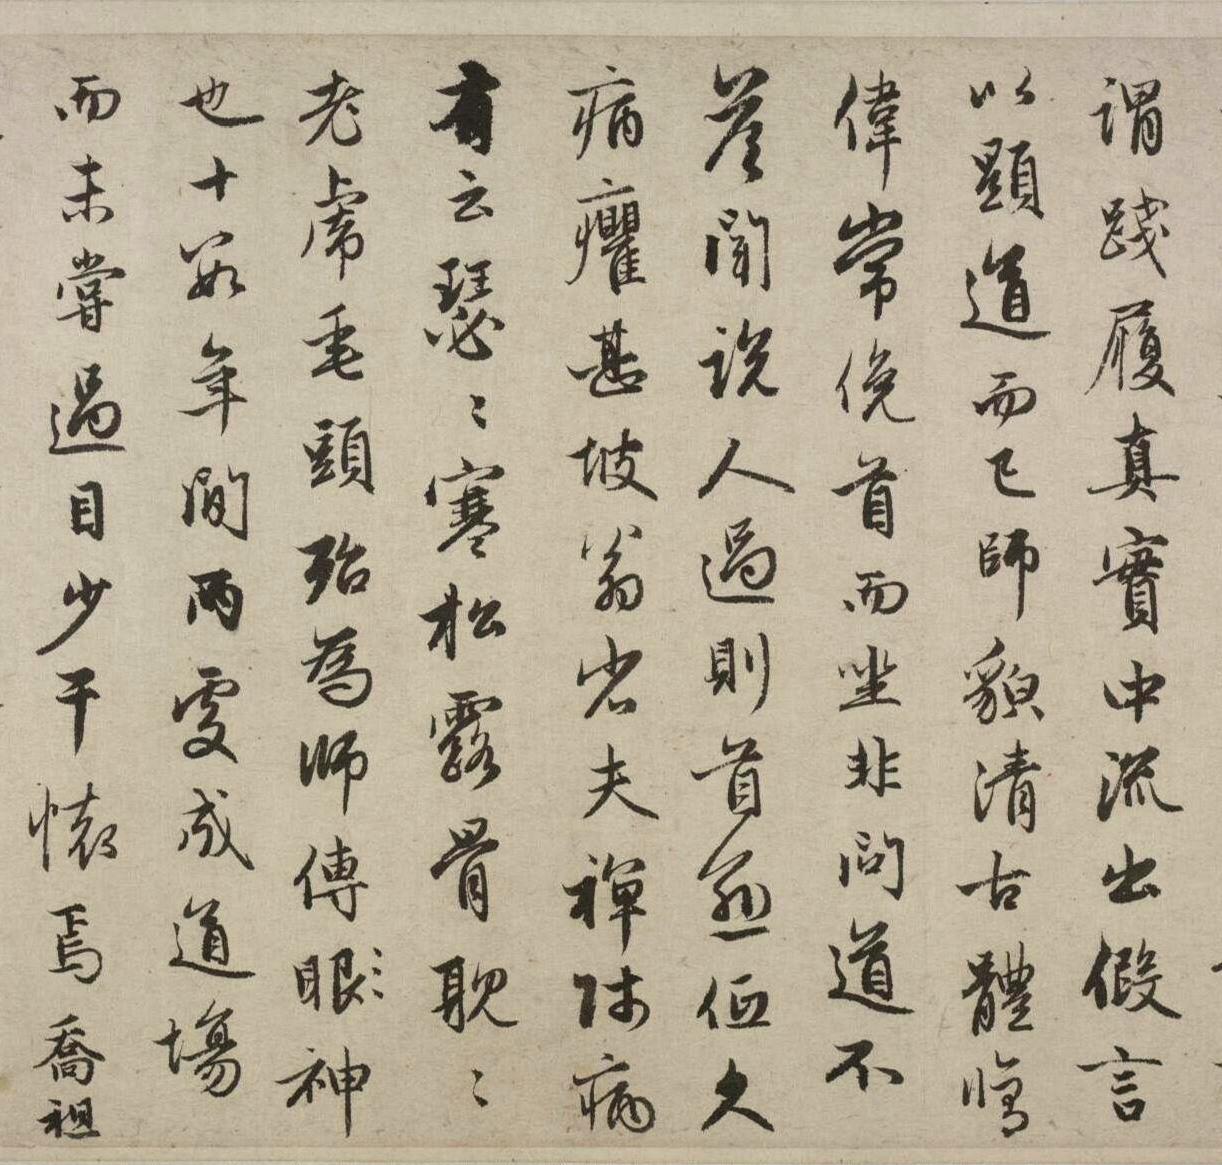 謂踐履真實中流出假言
以顯道而已師貌清古體
偉常俛首而坐非問道不
答聞説人過則首愈低久
病癯甚坡翁夫禪師病
有云瑟〻寒松露骨耽〻
老虎垂頭殆為師傳眼神
也十數年間兩處成道場
而未嘗過目少干懷焉喬祖